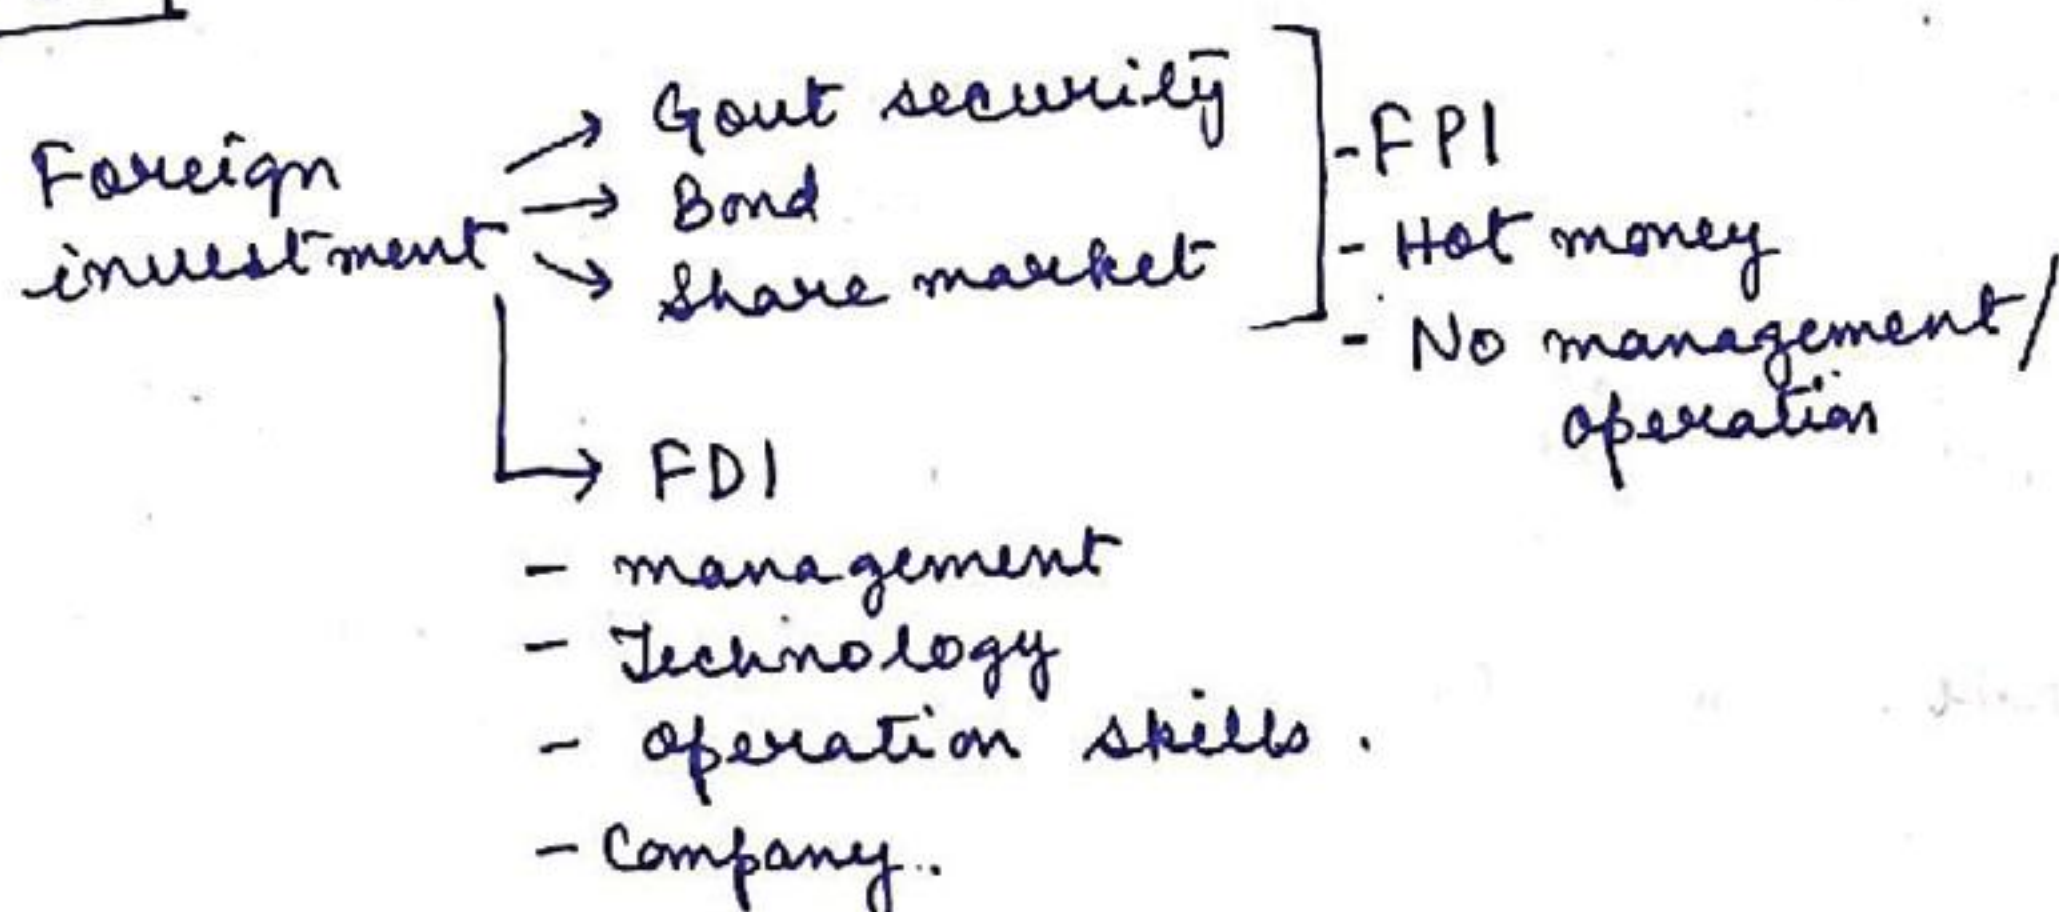 Foreign
investment
→ Govt security
→ Bond
→ Share market
- FPI
- Hot money
- No management/
operation
→ FDI
- management
- Technology
- operation skills.
- Company..